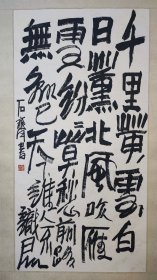 千里黃雲白
日曛北風吹雁
雪紛紛莫愁前路
無知己天下誰人不識君
石齊書